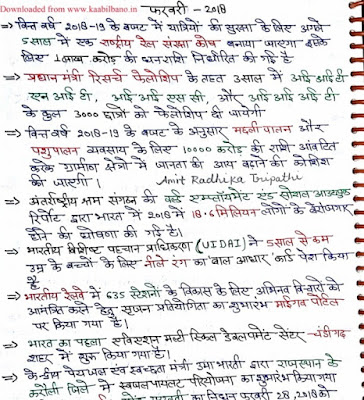 Downloaded from www.kaabilbano.in
फरवरी - 2018
⇒ वित्त वर्ष 2018-19 के बजट में यात्रियों की सुरक्षा के लिए अगले
5 साल में एक राष्ट्रीय रेल संरक्षा कोष बनाया जाएगा इसके
लिए 1 लाख करोड़ की धनराशि निर्धारित की गई है
⇒ प्रधान मंत्री रिसर्च फैलोशिप के तहत 3 साल में आई आई टी
एन आई टी, आई आई एस सी, और आई आई आई टी
के कुल 3000 छात्रों को फैलोशिप दी जायेगी
⇒ वित्त वर्ष 2018-19 के बजट के अनुसार मछली पालन और
पशुपालन व्यवसाय के लिए 10000 करोड़ की राशि आवंटित
करके ग्रामीण क्षेत्रों में जानता की आय बढ़ाने की कोशिश
की जाएगी। Amrit Radhika Tripathi
⇒ अंतर्राष्ट्रीय श्रम संगठन की वर्ल्ड एम्प्लॉयमेंट एंड सोशल आउटलुक
रिपोर्ट द्वारा भारत में 2018 में 18.6 मिलियन लोगों के बेरोजगार
होने की घोषणा की गई है।
⇒ भारतीय विशिष्ट पहचान प्राधिकरण (UIDAI) ने 5 साल से कम
उम्र के बच्चों के लिए नीले रंग का बाल आधार कार्ड पेश किया
है
⇒ भारतीय रेलवे में 635 स्टेशनों के विकास के लिए अभिनव विचारों को
आमंत्रित करने हेतु सृजन प्रतियोगिता का शुभारंभ माईगव पोर्टल
पर किया गया है।
⇒ भारत का पहला एविएशन मल्टी स्किल डेवलपमेंट सेंटर - चंडीगढ़
शहर में शुरू किया गया है।
⇒ केन्द्रीय पेयजल एवं स्वच्छता मंत्री उमा भारती द्वारा राजस्थान के
करौली जिले में स्वजल पायलट परियोजना का शुभारंभ किया गया
का निधन फरवरी 28, 2018 को